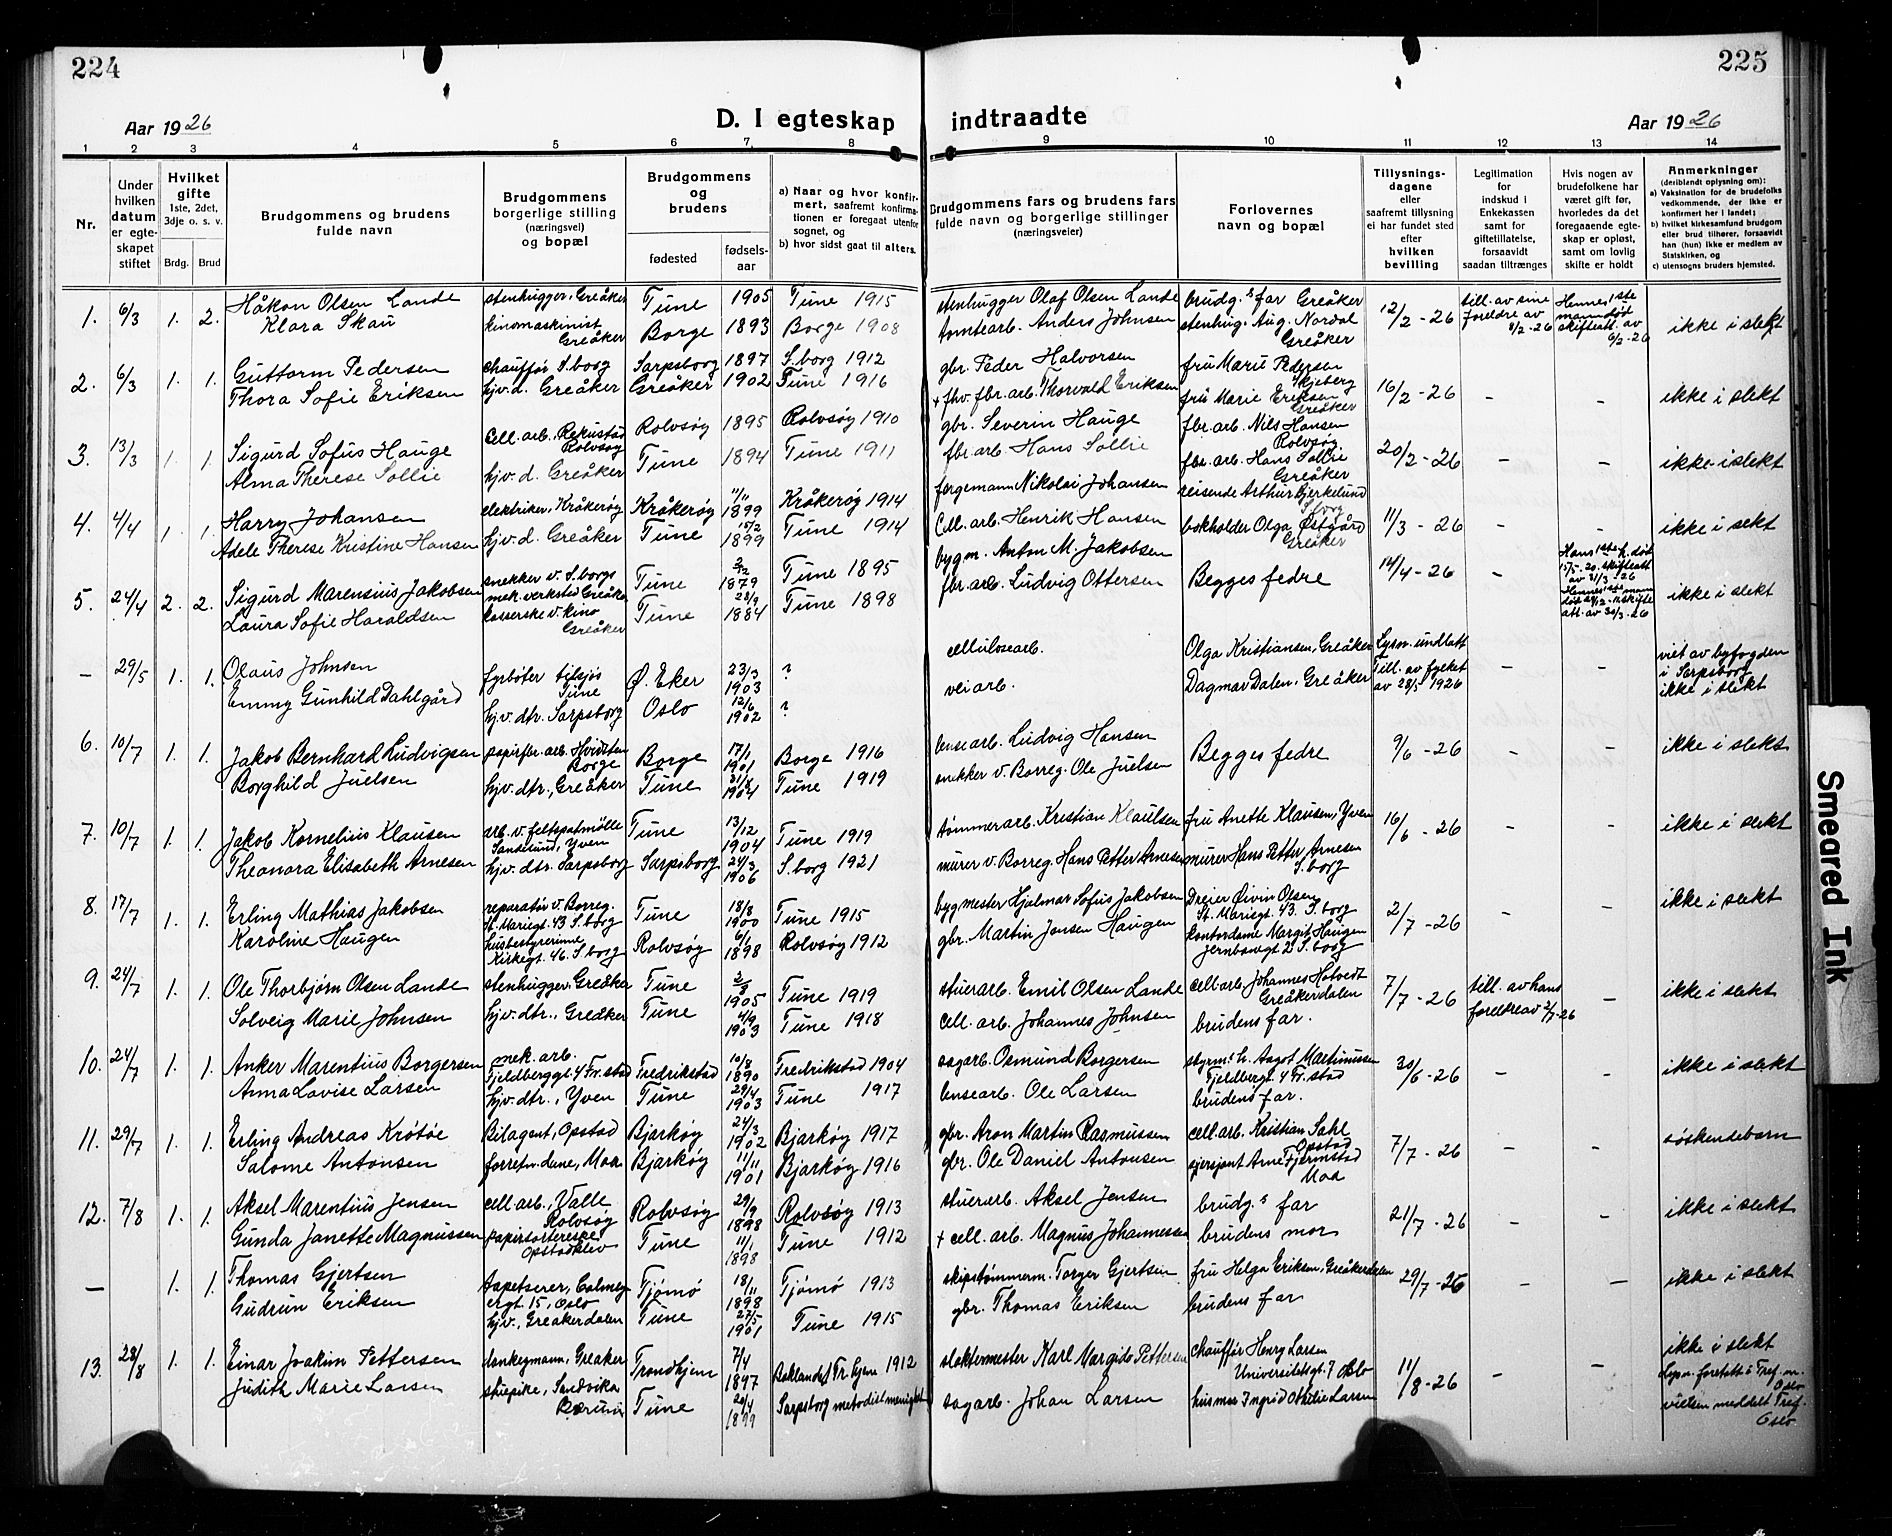 224
225
Aar 1926
D. I egteskap
indtraadte
Aar 1926
1 2 3 4 5 6 7 8 9 10 11 12 13 14
Nr.
Under hvilken datum er egteskapet stiftet
Hvilket gifte 1ste, 2det, 3dje o. s. v.
Brdg. Brud
Brudgommens og brudens fulde navn
Brudgommens borgerlige stilling (næringsvei) og bopæl
Brudgommens og brudens
fødested
fødselsaar
a) Naar og hvor konfirmert, saafremt konfirmationen er foregaat utenfor sognet, og
b) hvor sidst gaat til alters.
Brudgommens fars og brudens fars fulde navn og borgerlige stillinger (næringsveier)
Forlovernes navn og bopæl
Tillysningsdagene eller saafremt tillysning ei har fundet sted efter hvilken bevilling
Legitimation for indskud i Enkekassen samt for giftetillatelse, forsaavidt saadan tiltrænges
Hvis nogen av brudefolkene har været gift før, hvorledes da det foregaaende egteskap er opløst, samt om lovlig skifte er holdt
Anmerkninger (deriblandt oplysning om): a) Vaksination for de brudefolks vedkommende, der ikke er konfirmert her i landet; b) hvilket kirkesamfund brudgom eller brud tilhører, forsaavidt han (hun) ikke er medlem av Statskirken, og c) utensogns bruders hjemsted.
1. 6/3 1. 2. Håkon Olsen Lande stenhugger, Greåker Tune 1905 Tune 1915 stenhugger Olaf Olsen Lande brudg.s far Greåker 12/2-26 till. av sine foreldre av 8/2-26 Hennes 1ste mann død skifteatt. av 6/2-26 ikke i slekt
Klara Skau kinomaskinist Greåker Borge 1893 Borge 1908 Anders Johnsen stenhug. Aug. Nordal Greåker
2. 6/3 1. 1. Guttorm Pedersen chauffør S.borg Sarpsborg 1897 S.borg 1912 gbr. Peder Halvorsen fru Marie Pedersen Skjeberg 16/2-26 - - ikke i slekt
Thora Sofie Eriksen hjv.d. Greåker Greåker 1902 Tune 1916 + fhv. fbr. arb. Thorvald Eriksen fru Marie Eriksen Greåker
3. 13/3 1. 1. Sigurd Sofus Hauge cell. arb. Rekustad Rolvsøy Rolvsøy 1895 Rolvsøy 1910 gbr. Severin Hauge fbr. arb. Nils Hansen Rolvsøy 20/2-26 - - ikke i slekt
Alma Therese Sollie hjv.d. Greåker Tune 1894 Tune 1911 fbr. arb. Hans Sollie fbr. arb. Hans Sollie Greåker
4. 4/4 1. 1. Harry Johansen elektriker, Kråkerøy Kråkerøy 11/11 1899 Kråkerøy 1914 fergemann Nikolai Johansen reisende Arthur Bjerkelund S.borg 11/3-26 - - ikke i slekt
Adele Therese Kristine Hansen hjv.d. Greåker Tune 15/2 1899 Tune 1914 Cell. arb. Henrik Hansen bokholder Olga Østgård Greåker
5. 24/4 2. 2. Sigurd Marensius Jakobsen snekker v. S.borgs mek. verksted Greåker Tune 2/12 1879 Tune 1895 bygm. Anton M. Jakobsen Begges fedre 14/4-26 - Hans 1ste h. død 15/5-20. skifteatt av 31/3-26 ikke i slekt
Laura Sofie Haraldsen kasserske v. kino Greåker Tune 23/9 1884 Tune 1898 fbr. arb. Ludvig Ottersen Hennes 1ste mann skifte att. av 30/3-26
- 29/5 1. 1. Olaus Johnsen fyrbøter tilsjøs Tune Ø. Eker 23/3 1903 ? cellulosearb. Olga Kristiansen, Greåker Lysn. undlatt Till. av fylket av 28/5 1926 - - viet av byfogden i Sarpsborg ikke i slekt
Emmy Gunhild Dahlgård hjv. dtr. Sarpsborg Oslo 12/6 1902 ? veiarb. Dagmar Dalen, Greåker
6. 10/7 1. 1. Jakob Bernhard Ludvigsen papirfbr. arb. Hvidsten Borge Borge 17/1 1901 Borge 1916 lensearb. Ludvig Hansen Begges fedre 9/6-26 - - ikke i slekt
Borghild Juelsen hjv. dtr., Greåker Tune 1904 Tune 1919 snekker v. Borreg. Ole Juelsen
7. 10/7 1. 1. Jakob Kornelius Klausen arb. v. feltspatmølle Sandesund, Yven Tune 13/12 1904 Tune 1919 tømmerarb. Kristian Klaulsen fru Anette Klausen, Yven 16/6-26 - - ikke i slekt
Theonora Elisabeth Arnesen hjv. dtr. Sarpsborg Sarpsborg 24/3 1906 S.borg 1921 murer v. Borreg. Hans Petter Arnesen murer Hans Petter Arnesen S.borg
8. 17/7 1. 1. Erling Mathias Jakobsen reparatør v. Borreg. St. Mariegt. 43 S.borg Tune 18/8 1900 Tune 1915 bygmester Hjalmar Sofus Jakobsen Dreier Øivin Olsen St. Mariegt. 43. S.borg 2/7-26 - - ikke i slekt
Karoline Haugen husbestyrerinne Kirkegt. 46. S.borg Rolvsøy 6/1 1898 Rolvsøy 1912 gbr. Martin Jensen Haugen kontordame Margit Haugen Jernbanegt 2 S.borg
9. 24/7 1. 1. Ole Thorbjørn Olsen Lande stenhugger, Greåker Tune 2/3 1905 Tune 1919 stuerarb. Emil Olsen Lande cell. arb. Johannes Hotvedt Greåkerdalen 7/7-26 till. av hans foreldre av 2/7-26 - ikke i slekt
Solveig Marie Johnsen hjv. dtr., Greåker Tune 4/9 1903 Tune 1918 cell. arb. Johannes Johnsen brudens far.
10. 24/7 1. 1. Anker Marentius Borgersen mek. arb. Fjeldberggt. 4 Fr.stad Fredrikstad 10/8 1890 Fredrikstad 1904 sagarb. Osmund Borgersen styrm.s h. Aagot Martinussen Fjeldbergt. 4 Fr.stad 30/6-26 - - ikke i slekt
Anna Lovise Larsen hjv. dtr., Yven Tune 29/4 1903 Tune 1917 lensearb. Ole Larsen brudens far.
11. 29/7 1. 1. Erling Andreas Krøtøe Bilagent, Opstad Bjarkøy 24/3 1902 Bjarkøy 1917 gbr. Aron Martin Rasmussen cell. arb. Kristian Sahl Opstad 7/7-26 - - søskendebarn
Salome Antonsen forretn.dame, Moa Bjarkøy 11/11 1901 Bjarkøy 1916 gbr. Ole Daniel Antonsen sjersjant Arne Fjermstad Moa
12. 7/8 1. 1. Aksel Marentius Jensen cell. arb., Valle Rolvsøy Rolvsøy 29/9 1898 Rolvsøy 1913 stuerarb. Aksel Jensen brudg.s far 21/7-26 - - ikke i slekt
Gunda Janette Magnussen papirsorterske Opstadkleiv Tune 11/1 1898 Tune 1912 + cell. arb. Magnus Johannessen brudens mor
- 1. 1. Thomas Gjertsen tapetserer, Calmeyergt. 15, Oslo Tjømø 18/11 1898 Tjømø 1913 skipstømmerm. Torger Gjertsen fru Helga Eriksen, Greåkerdalen 29/7-26 - - ikke i slekt
Gudrun Eriksen hjv., Greåkerdalen Tune 27/5 1901 Tune 1915 gbr. Thomas Eriksen brudens far
13. 28/8 1. 1. Einar Joakim Pettersen donkeymann, Greåker Trondhjem 7/4 1897 Baklandet Tr.hjem 1912 slaktermester Karl Margido Pettersen chauffør Henry Larsen Universitetsgt. 7 Oslo 11/8-26 - - ikke i slekt Lysn. foretatt i Tref. m. Oslo vielsen meddelt Tref. Oslo.
Judith Marie Larsen stuepike, Sandvika Bærum Tune 24/4 1899 Sarpsborg metodistmenighet sagarb. Johan Larsen husmor Ingrid Othilie Larsen
Smeared Ink